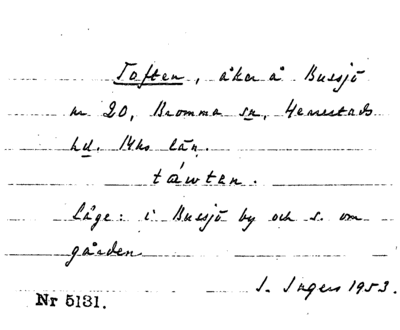 Toften, åker å Bussjö
nr 20, Bromma sn, Herrestads
hd. Mhs län.
táwten.
Läge: i Bussjö by och s. om
gården
I. Ingers 1953.
Nr 5131.